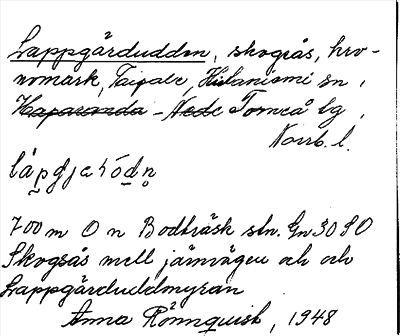 Lappgårduddon, skogsås, kro-
nomark, Taipale, Hietaniemi sn,
Haparanda - Nede Torneå tg,
Norrb. l.
700 m O n Bodträsk stn. Gn 30 SO
Skogsås mell järnvägen och och
Lappgårduddmyran
Anna Rönnquist, 1948